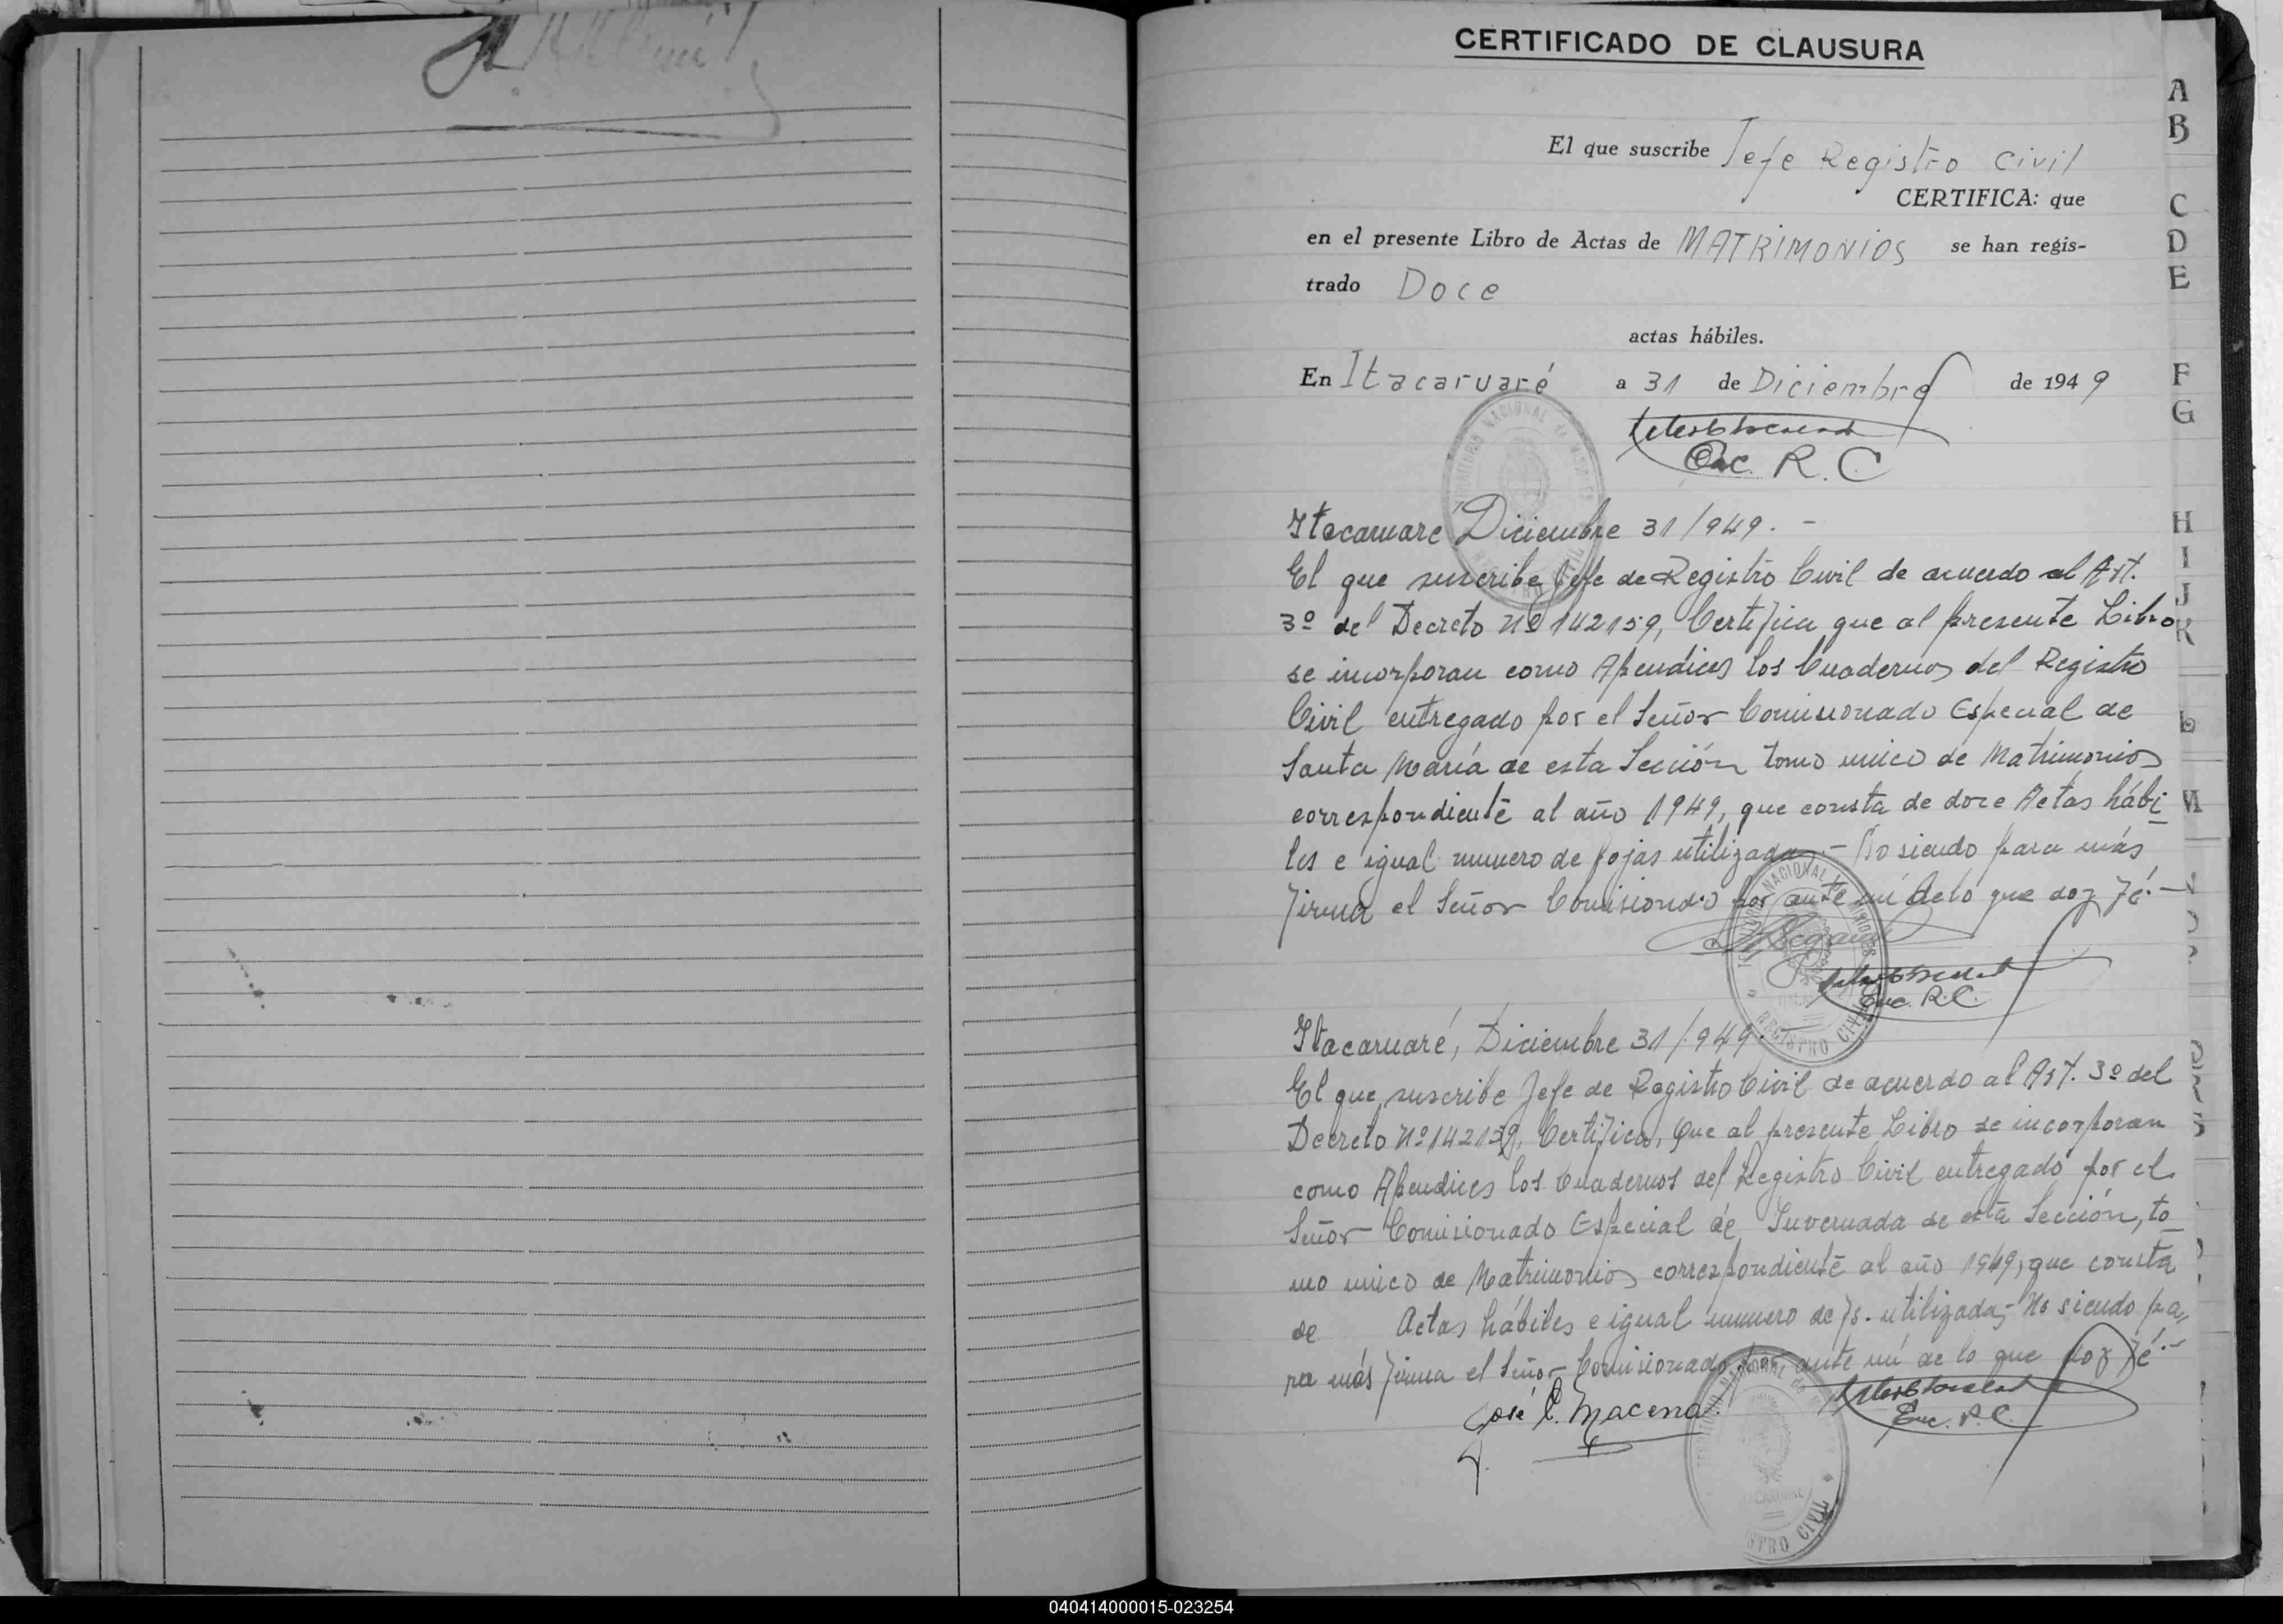 CERTIFICADO DE CLAUSURA
El que suscribe Jefe Registro Civil
CERTIFICA: que
en el presente Libro de Actas de MATRIMONIOS se han regis-
trado Doce
actas hábiles.
En Itacaruaré a 31 de Diciembre de 1949
Enc. R. C
Itacaruaré Diciembre 31/949. -
El que suscribe Jefe de Registro Civil de acuerdo al Art.
3º del Decreto Nº 142159, Certifica que al presente Libro
se incorporan como Apendices los Cuadernos del Registro
Civil entregado por el Señor Comisionado Especial de
Santa María de esta Sección tomo unico de Matrimonios
correspondiente al año 1949, que consta de doce Actas hábi
les e igual numero de fojas utilizadas.- No siendo para más
firma el Señor Comisionado por ante mí de lo que doy fé.-
Enc. R.C.
Itacaruaré, Diciembre 31/949.-
El que suscribe Jefe de Registro Civil de acuerdo al Art. 3º del
Decreto Nº 142159, Certifica, Que al presente Libro se incorporan
como Apendices los Cuadernos del Registro Civil entregado por el
Señor Comisionado Especial de Invernada de esta Sección, to
mo unico de Matrimonios correspondiente al año 1949, que consta
de Actas hábiles e igual numero de fs. utilizada,- No siendo pa,
ra más firma el Señor Comisionado por ante mí de lo que doy fé.-
José C. Macena.
Enc. R.C.
TERRITORIO NACIONAL de MISIONES
REGISTRO CIVIL
A
B
C
D
E
F
G
H
I
J
K
L
M
040414000015-023254